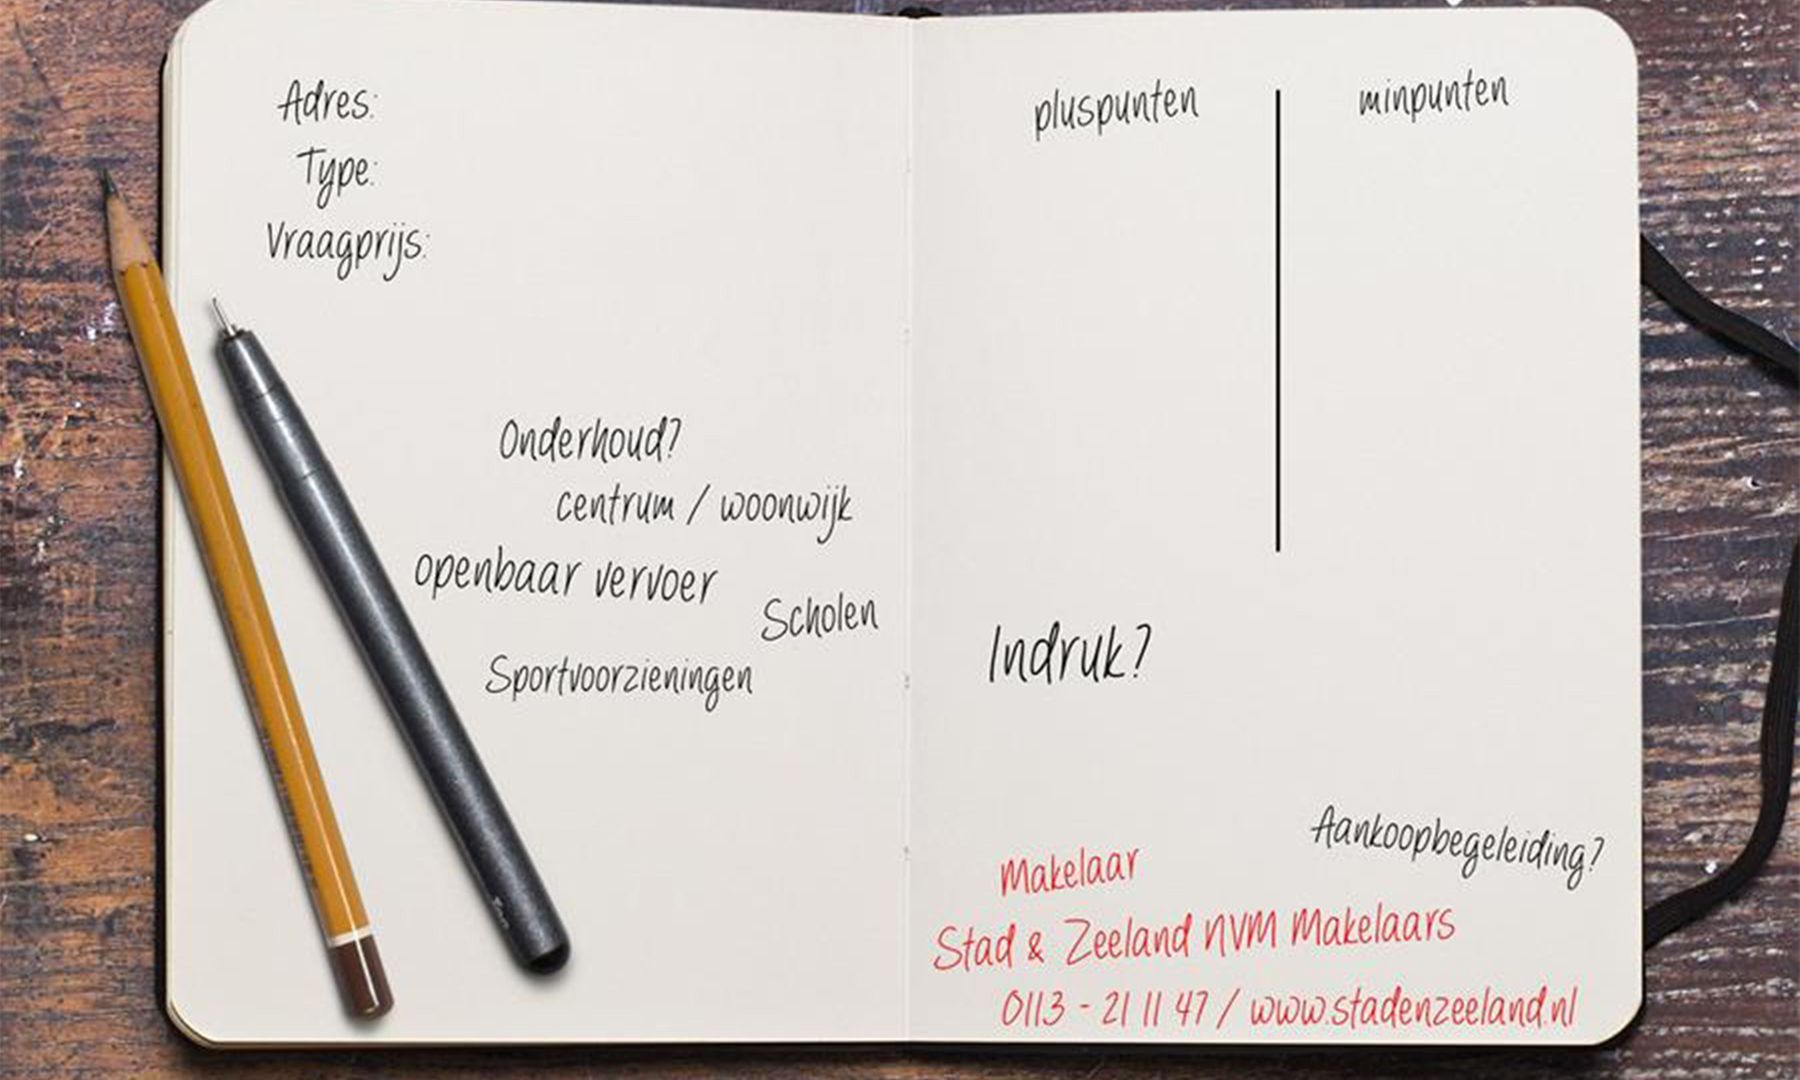 Adres:
Type:
Vraagprijs:
Onderhoud?
centrum / woonwijk
openbaar vervoer
Scholen
Sportvoorzieningen
pluspunten
minpunten
Indruk?
Aankoopbegeleiding?
Makelaar
Stad & Zeeland NVM Makelaars
0113 - 21 11 47 / www.stadenzeeland.nl